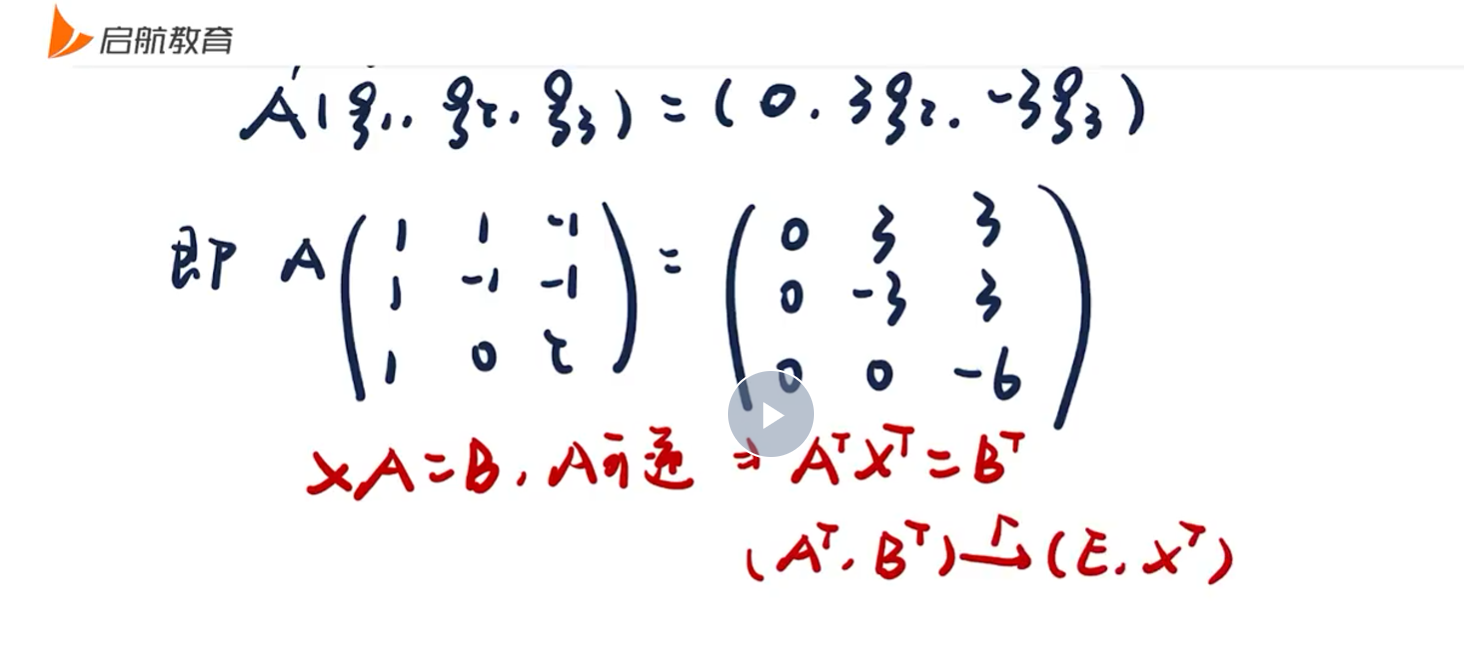 启航教育
A(ξ₁, ξ₂, ξ₃) = (0, 3ξ₂, -3ξ₃)
即 A
1 1 -1
1 -1 -1
1 0 2
=
0 3 3
0 -3 3
0 0 -6
XA=B, A可逆 ⇒ AᵀXᵀ=Bᵀ
(Aᵀ, Bᵀ) →r (E, Xᵀ)